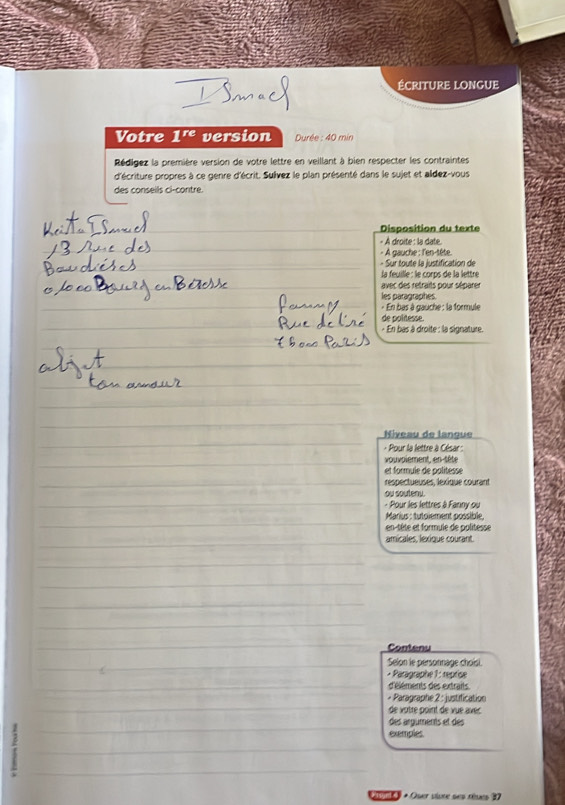 ISmael
ÉCRITURE LONGUE
Votre 1re version
Durée : 40 min
Rédigez la première version de votre lettre en veillant à bien respecter les contraintes
d'écriture propres à ce genre d'écrit. Suivez le plan présenté dans le sujet et aidez-vous
des conseils ci-contre.
Keita ISmael
13 Rue des
Baudiéres
01000 Bourg en Bresse
Fanny
Rue de liné
76000 Paris
objet
ton amour
Disposition du texte
- À droite : la date.
- À gauche : l'en-tête.
- Sur toute la justification de
la feuille : le corps de la lettre
avec des retraits pour séparer
les paragraphes.
- En bas à gauche : la formule
de politesse.
- En bas à droite : la signature.
Niveau de langue
- Pour la lettre à César :
vouvoiement, en-tête
et formule de politesse
respectueuses, lexique courant
ou soutenu.
- Pour les lettres à Fanny ou
Marius : tutoiement possible,
en-tête et formule de politesse
amicales, lexique courant.
Contenu
Selon le personnage choisi.
- Paragraphe 1 : reprise
d'éléments des extraits.
- Paragraphe 2 : justification
de votre point de vue avec
des arguments et des
exemples.
Projet 4 • Oser vivre ses rêves 37